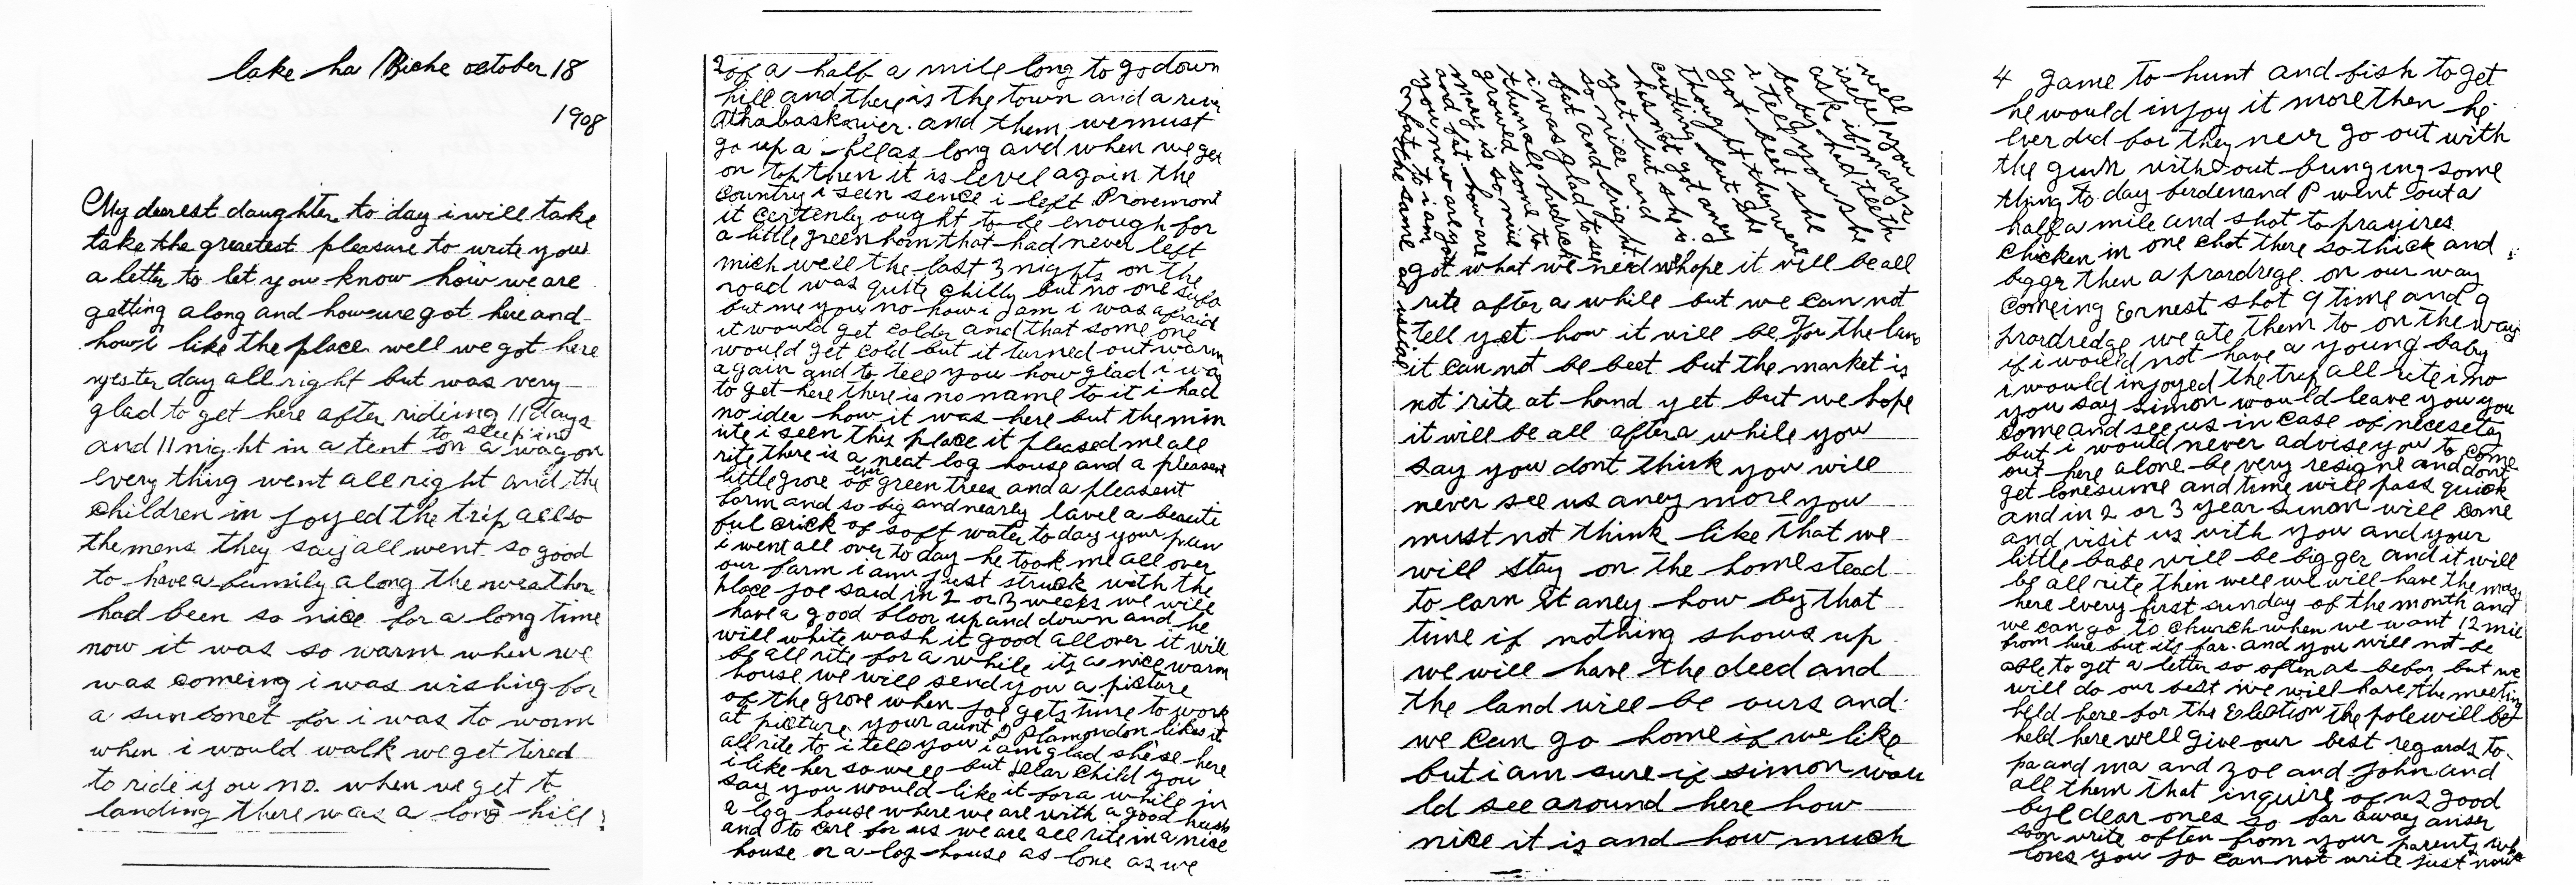 lake ha Biche october 18
1908
My dearest daughter to day i will take
take the greatest pleasure to write you
a letter to let you know how we are
getting along and how we got here and
how i like the place well we got here
yesterday all right but was very
glad to get here after riding 11 days
to sleep in
and 11 night in a tent on a wagon
every thing went all right and the
children in joyed the trip allso
the mens they say all went so good
to have a family along the weather
had been so nice for a long time
now it was so warm when we
was comeing i was wishing for
a sun bonet for i was to worm
when i would walk we get tired
to ride you no. when we get to
landing there was a long hill
2 of a half a mile long to go down
hill and there is the town and a river
Athabaskwier. and them we must
go up a hill as long and when we get
on top then it is level again the
country i seen sence i left Provemont
it certenly ought to be enough for
a little green horn that had never left
mich well the last 3 nights on the
road was quite chilly but no one
but me you no how i am i was afraid
it would get colder and that some one
would get cold but it turned out warm
again and to tell you how glad i was
to get here there is no name to it i had
no idea how it was here but the min
ute i seen this place it pleased me all
rite there is a neat log house and a pleasent
little grove of ever green trees and a pleasent
farm and so big and nearly lavel a beauti
ful crick of soft water to day your paw
i went all over to day he took me all over
our farm i am just struck with the
place joe said in 2 or 3 weeks we will
have a good floor up and down and he
will white wash it good all over it will
be all rite for a while its a nice warm
house we will send you a picture
of the grove when joe gets time to work
at picture your aunt D Plamondon likes it
all rite to i tell you i am glad she se here
i like her so well but dear child you
say you would like it for a while in
a log house where we are with a good husb
and to care for us we are all rite in a nice
house or a log house as lone as we
well you
isebel you
ask if marys
baby had teeth
i tell you she
got beet she
thought they were
cutting but she
has not got aney
yet but she is
so nice and
fat and bright
i was glad to see
them all fredrick
growed some to
mary is so nice
and fat how are
you new are you
fat to i am
the same
as usual
got what we need whope it will be all
rite after a while but we can not
tell yet how it will be for the lan
it can not be beet but the market is
not rite at hand yet but we hope
it will be all after a while you
say you dont think you will
never see us aney more you
must not think like that we
will stay on the home stead
to earn it aney how by that
time if nothing shows up
we will have the deed and
the land will be ours and
we can go home if we like
but i am sure if simon wou
ld see around here how
nice it is and how much
4 game to hunt and fish to get
he would injoy it more then he
ever did for they never go out with
the gun without bringing some
thing to day ferdenand P went out a
half a mile and shot to prayires
chicken in one chot there so thick and
bigger then a prardrege. on our way
comeing Ernest shot 9 time and 9
prardredge we ate them to on the way
if i would not have a young baby
i would injoyed the trip all rite i no
you say simon would leave you you
come and see us in case of necesety
but i would never advise you to come
out here alone be very resigne and dont
get lonesume and time will pass quick
and in 2 or 3 year simon will come
and visit us with you and your
little babe will be bigger and it will
be all rite then well we will have the mass
here every first sunday of the month and
we can go to church when we want 12 mile
from here but its far. and you will not be
able to get a letter so often as befor but we
will do our best we will have the meeting
held here for the Election the pole will be
held here well give our best regards to
pa and ma and zoe and john and
all them that inquire of us good
bye dear ones so far away anser
soon write often from your parents who
loves you jo can not write just now